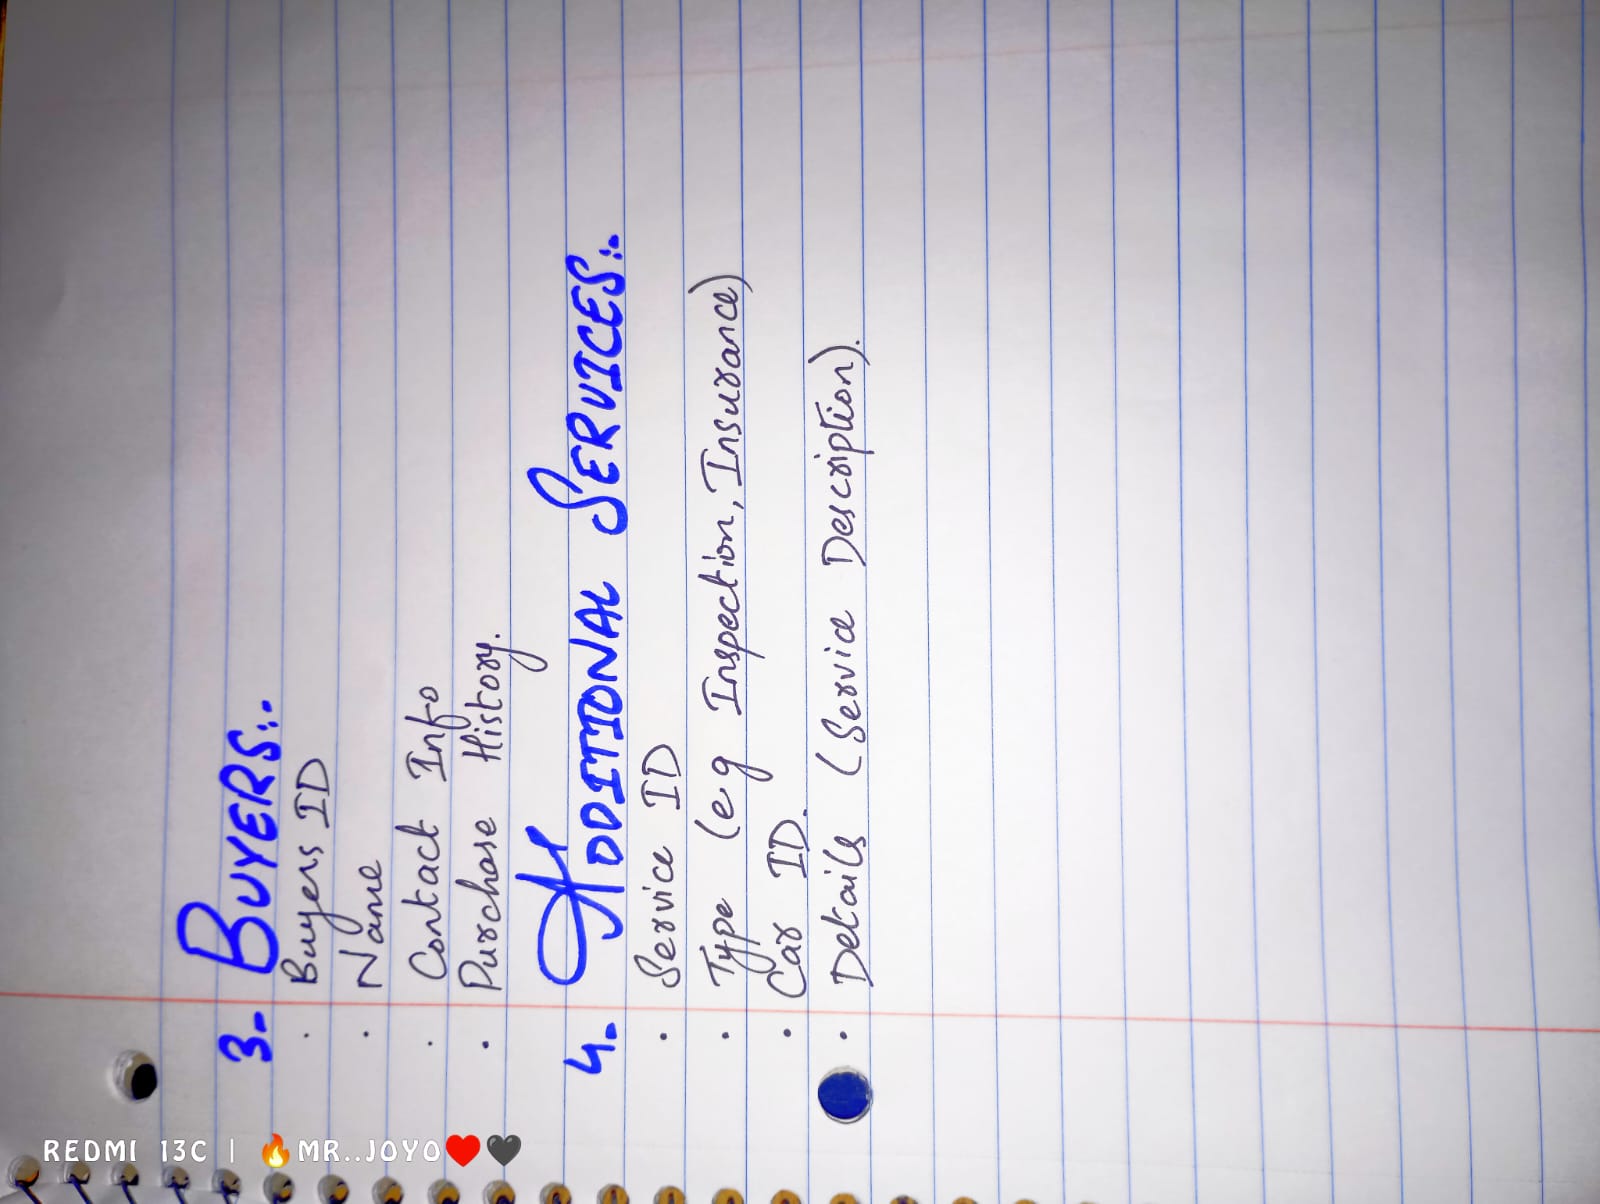 3. BUYERS:-
· Buyers ID
· Name
· Contact Info
· Purchase History.
4. ADDITIONAL SERVICES:-
· Service ID
· Type (eg Inspection, Insurance)
· Car ID.
· Details (Service Description).
REDMI 13C | 🔥MR..JOYO❤️🖤